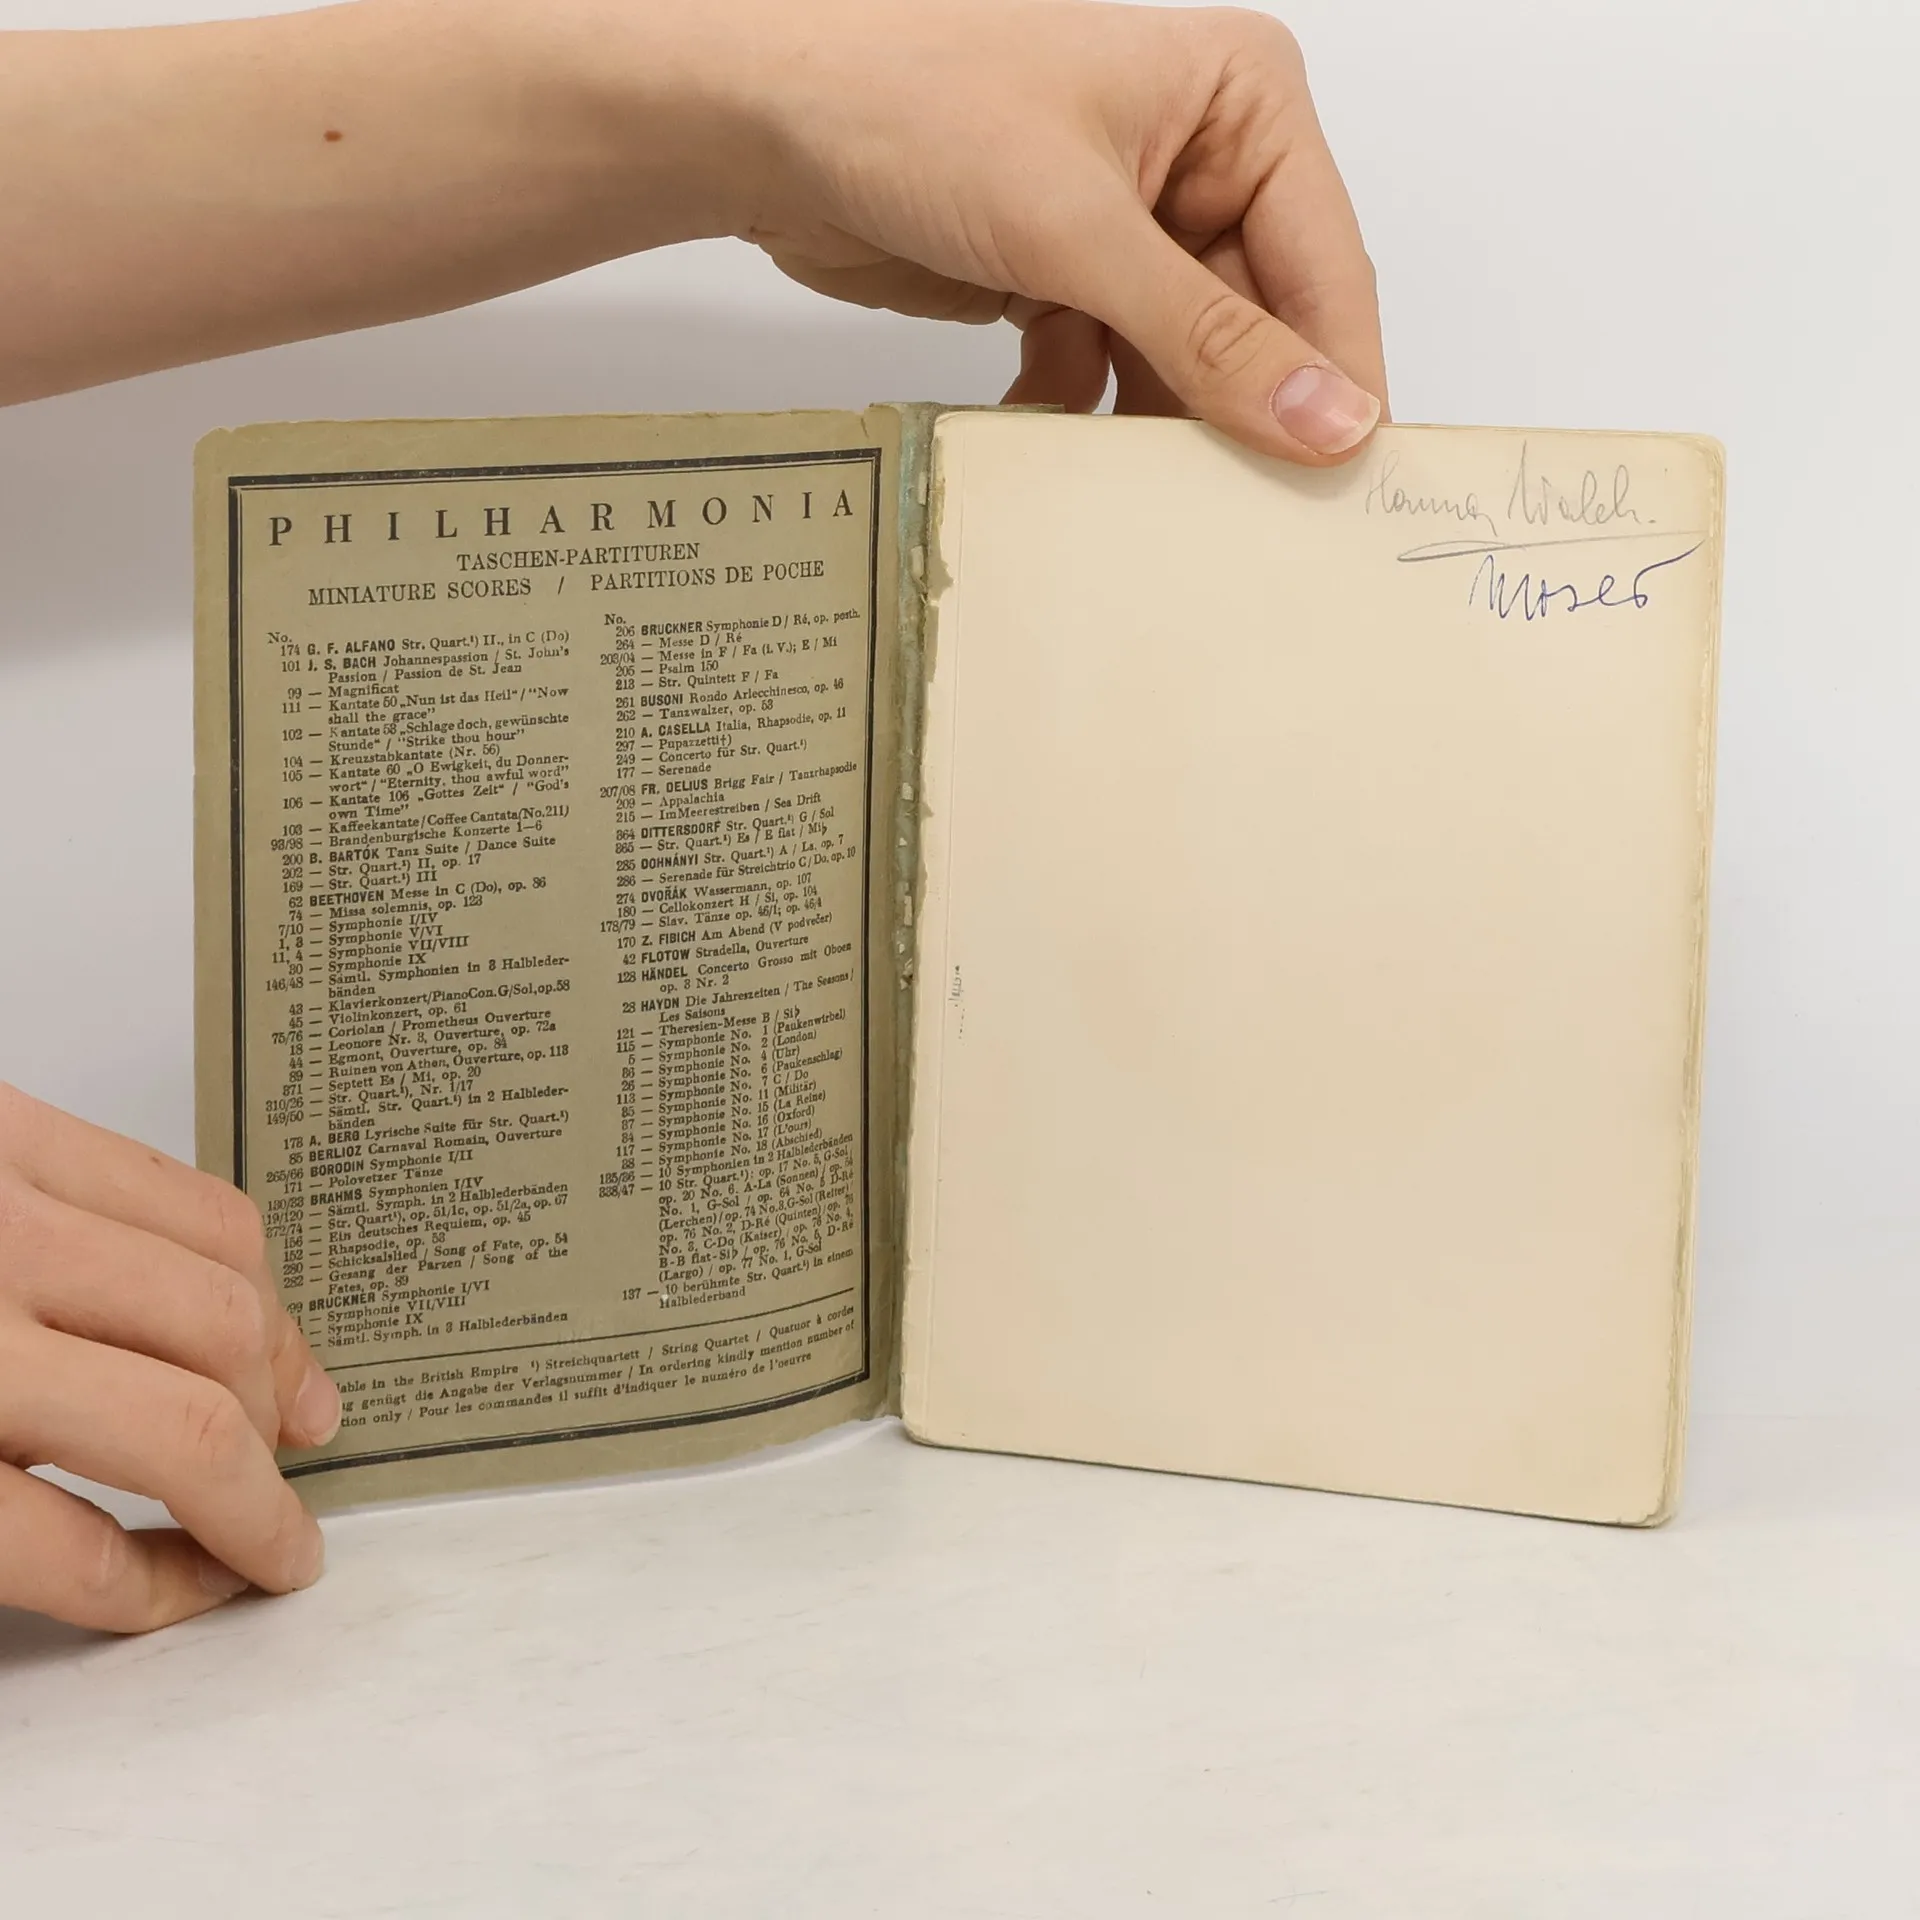 PHILHARMONIA
TASCHEN-PARTITUREN
MINIATURE SCORES / PARTITIONS DE POCHE
No.
174 G. F. ALFANO Str. Quart.¹) II., in C (Do)
101 J. S. BACH Johannespassion / St. John's
Passion / Passion de St. Jean
99 — Magnificat
111 — Kantate 50 „Nun ist das Heil“ / "Now
shall the grace"
102 — Kantate 53 „Schlage doch, gewünschte
Stunde“ / "Strike thou hour"
104 — Kreuzstabkantate (Nr. 56)
105 — Kantate 60 „O Ewigkeit, du Donner-
wort“ / "Eternity, thou awful word"
106 — Kantate 106 „Gottes Zeit“ / "God's
own Time"
103 — Kaffeekantate/Coffee Cantata(No.211)
93/98 — Brandenburgische Konzerte 1—6
200 B. BARTÓK Tanz Suite / Dance Suite
202 — Str. Quart.¹) II, op. 17
169 — Str. Quart.¹) III
62 BEETHOVEN Messe in C (Do), op. 86
74 — Missa solemnis, op. 123
7/10 — Symphonie I/IV
1, 3 — Symphonie V/VI
11, 4 — Symphonie VII/VIII
30 — Symphonie IX
146/48 — Sämtl. Symphonien in 3 Halbleder-
bänden
43 — Klavierkonzert/PianoCon.G/Sol,op.58
45 — Violinkonzert, op. 61
75/76 — Coriolan / Prometheus Ouverture
18 — Leonore Nr. 3, Ouverture, op. 72a
44 — Egmont, Ouverture, op. 84
89 — Ruinen von Athen, Ouverture, op. 113
371 — Septett Es / Mi, op. 20
310/26 — Str. Quart.¹), Nr. 1/17
149/50 — Sämtl. Str. Quart.¹) in 2 Halbleder-
bänden
173 A. BERG Lyrische Suite für Str. Quart.¹)
85 BERLIOZ Carnaval Romain, Ouverture
265/66 BORODIN Symphonie I/II
171 — Polovetzer Tänze
130/33 BRAHMS Symphonien I/IV
119/120 — Sämtl. Symph. in 2 Halblederbänden
372/74 — Str. Quart¹), op. 51/1c, op. 51/2a, op. 67
156 — Ein deutsches Requiem, op. 45
152 — Rhapsodie, op. 53
280 — Schicksalslied / Song of Fate, op. 54
282 — Gesang der Parzen / Song of the
Fates, op. 89
/99 BRUCKNER Symphonie I/VI
— Symphonie VII/VIII
— Symphonie IX
— Sämtl. Symph. in 3 Halblederbänden
No.
206 BRUCKNER Symphonie D / Ré, op. posth.
264 — Messe D / Ré
203/04 — Messe in F / Fa (i. V.); E / Mi
205 — Psalm 150
213 — Str. Quintett F / Fa
261 BUSONI Rondo Arlecchinesco, op. 46
262 — Tanzwalzer, op. 53
210 A. CASELLA Italia, Rhapsodie, op. 11
297 — Pupazzetti†)
249 — Concerto für Str. Quart.¹)
177 — Serenade
207/08 FR. DELIUS Brigg Fair / Tanzrhapsodie
209 — Appalachia
215 — Im Meerestreiben / Sea Drift
364 DITTERSDORF Str. Quart.¹) G / Sol
365 — Str. Quart.¹) Es / E flat / Mi♭
285 DOHNÁNYI Str. Quart.¹) A / La, op. 7
286 — Serenade für Streichtrio C/Do, op. 10
274 DVOŘÁK Wassermann, op. 107
180 — Cellokonzert H / Si, op. 104
178/79 — Slav. Tänze op. 46/1; op. 46/4
170 Z. FIBICH Am Abend (V podvečer)
42 FLOTOW Stradella, Ouverture
128 HÄNDEL Concerto Grosso mit Oboen
op. 3 Nr. 2
28 HAYDN Die Jahreszeiten / The Seasons /
Les Saisons
121 — Theresien-Messe B / Si♭
115 — Symphonie No. 1 (Paukenwirbel)
5 — Symphonie No. 2 (London)
86 — Symphonie No. 4 (Uhr)
26 — Symphonie No. 6 (Paukenschlag)
113 — Symphonie No. 7 C / Do
85 — Symphonie No. 11 (Militär)
87 — Symphonie No. 15 (La Reine)
84 — Symphonie No. 16 (Oxford)
117 — Symphonie No. 17 (L'ours)
88 — Symphonie No. 18 (Abschied)
135/36 — 10 Symphonien in 2 Halblederbänden
338/47 — 10 Str. Quart.¹): op. 17 No. 5, G-Sol /
op. 20 No. 6, A-La (Sonnen) / op. 54
No. 1, G-Sol / op. 64 No. 5 D-Ré
(Lerchen) / op. 74 No.3, G-Sol (Reiter) /
op. 76 No. 2, D-Ré (Quinten) / op. 76
No. 3, C-Do (Kaiser) / op. 76 No. 4,
B-B flat-Si♭ / op. 76 No. 5, D-Ré
(Largo) / op. 77 No. 1, G-Sol
137 — 10 berühmte Str. Quart.¹) in einem
Halblederband
lable in the British Empire ¹) Streichquartett / String Quartet / Quatuor à cordes
g genügt die Angabe der Verlagsnummer / In ordering kindly mention number of
tion only / Pour les commandes il suffit d'indiquer le numéro de l'oeuvre
Hanna Walch.
Moser